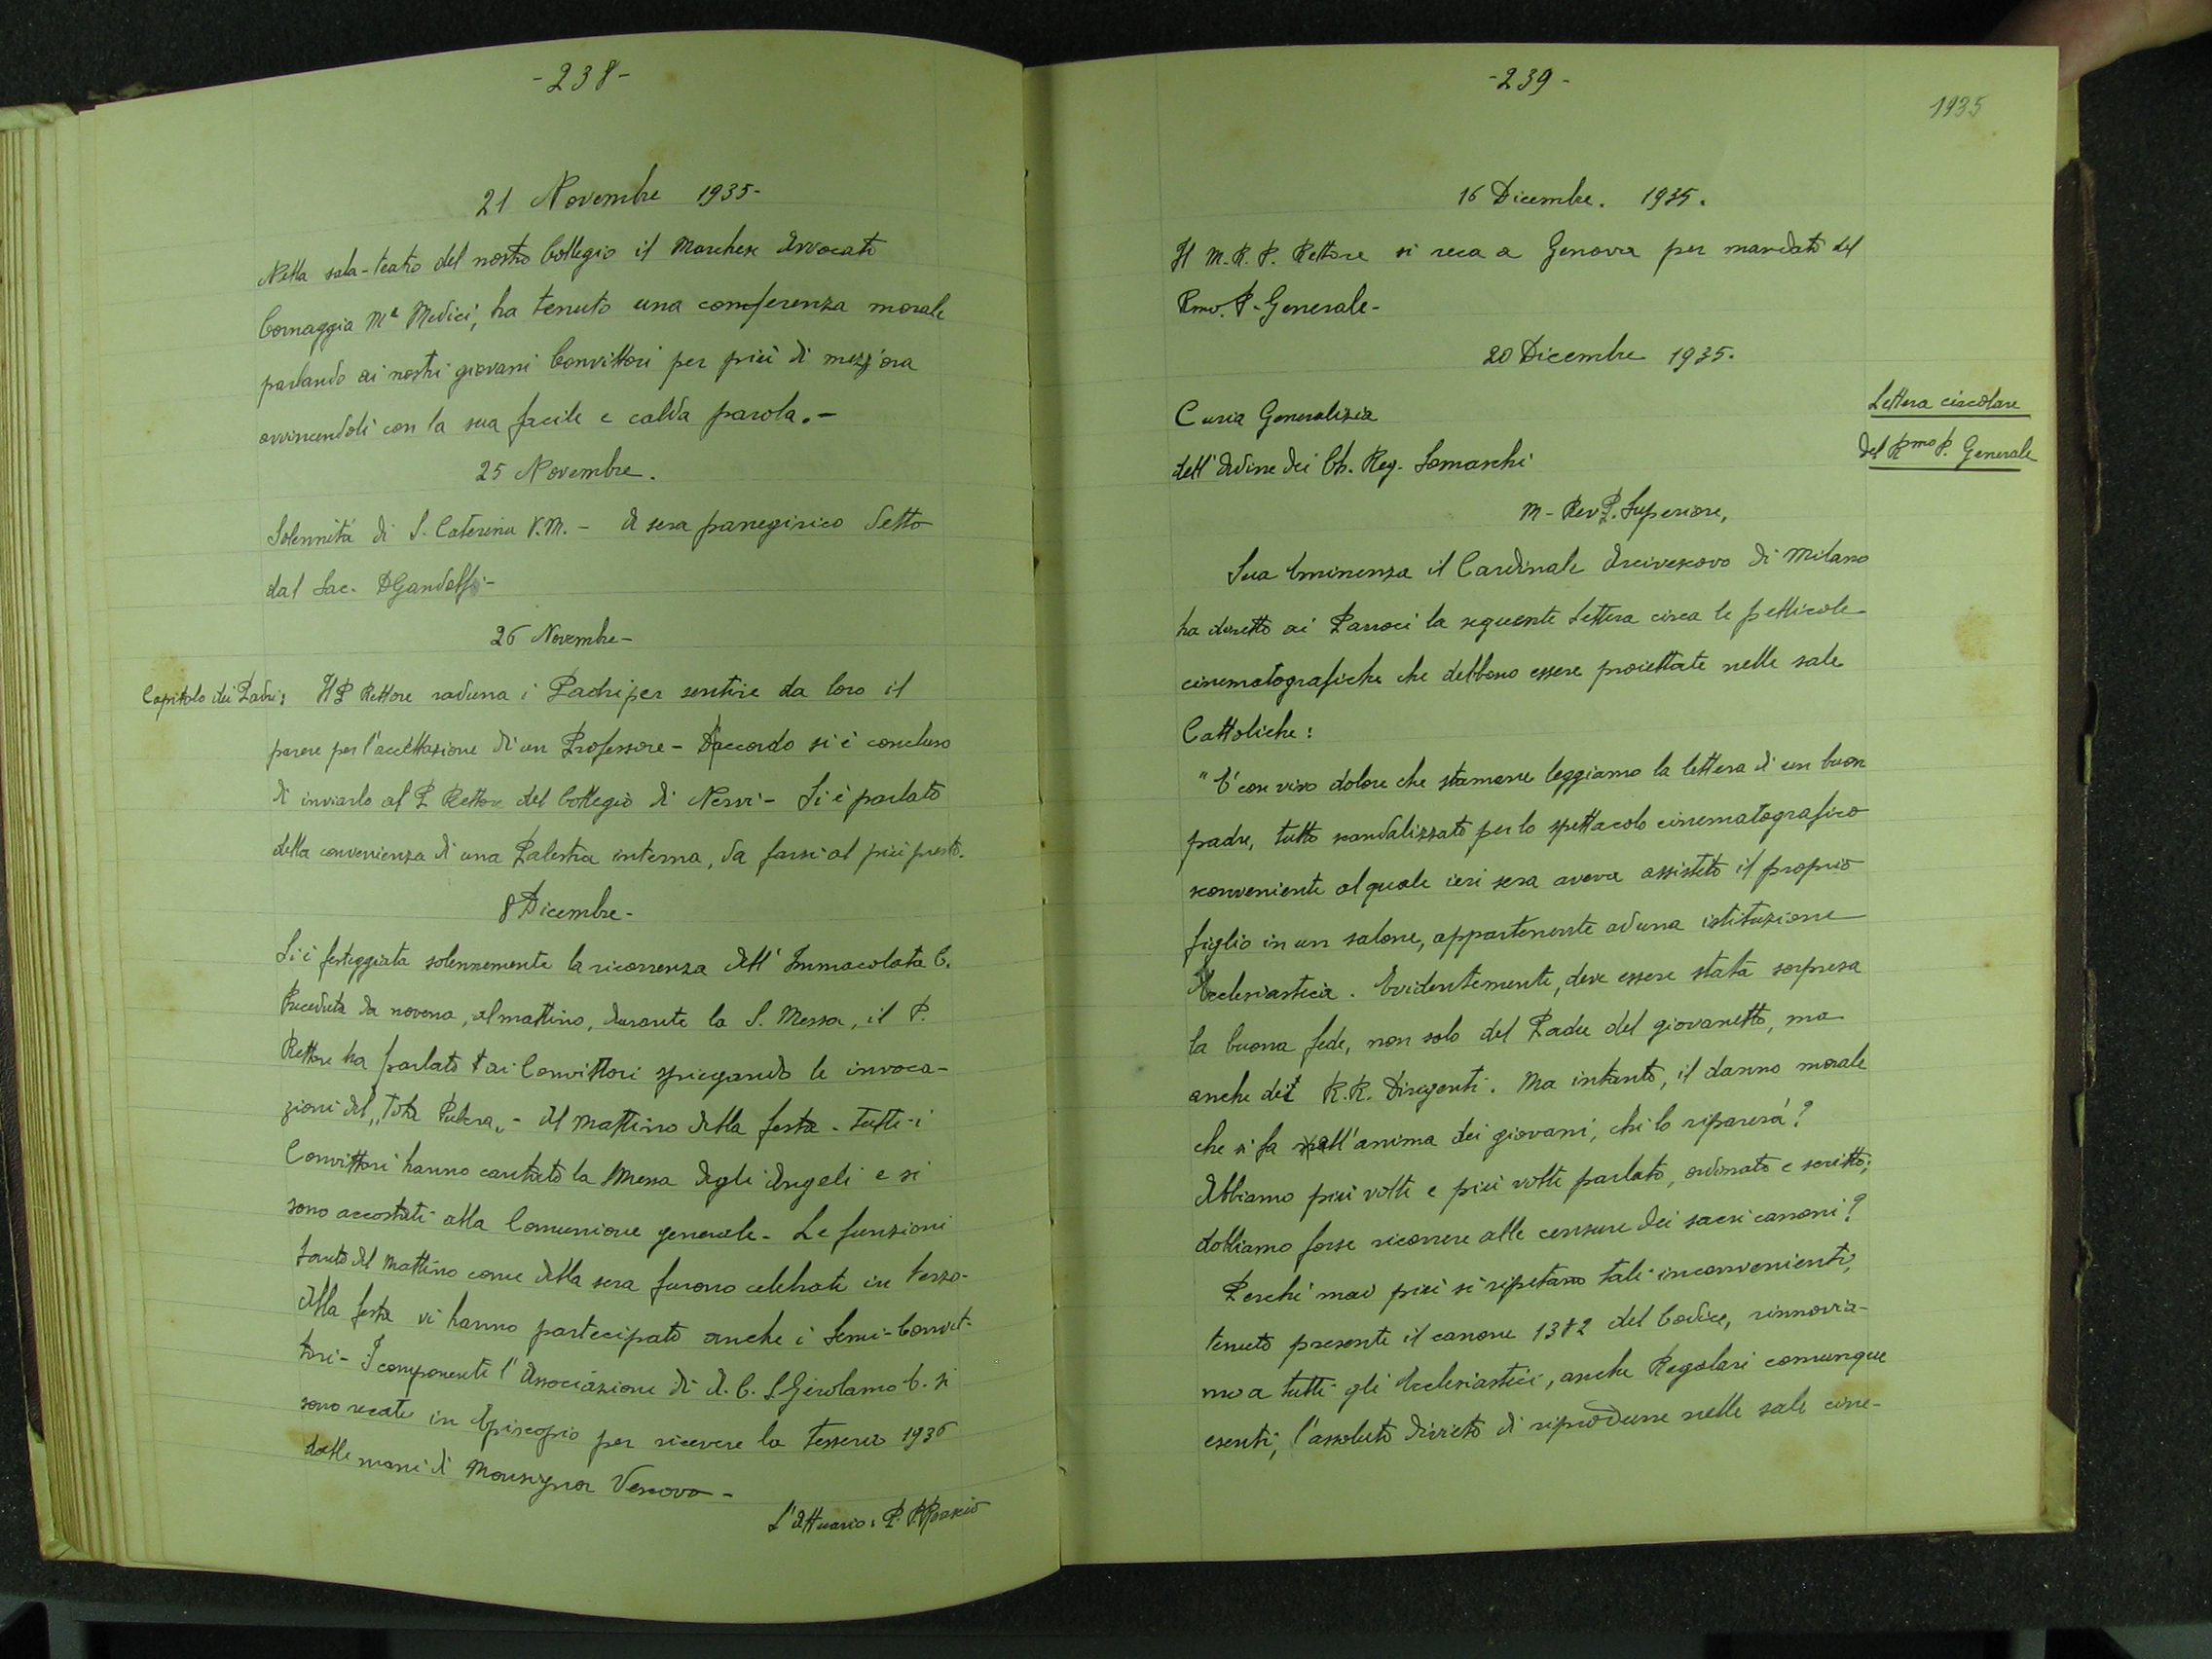 -238-
21 Novembre 1935-
Nella sala-teatro del nostro Collegio il Marchese Avvocato
Cornaggia Mª Medici, ha tenuto una conferenza morale
parlando ai nostri giovani Convittori per più di mezz'ora
avvincendoli con la sua facile e calda parola.-
25 Novembre.
Solennità di S. Caterina V.M. - A sera panegirico detto
dal Sac. D Gandolfi-
26 Novembre-
Capitolo dei Padri: Il P Rettore raduna i Padri per sentire da loro il
parere per l'accettazione di un Professore - D'accordo si è concluso
di inviarlo al P Rettore del Collegio di Nervi - Si è parlato
della convenienza di una Palestra interna, da farsi al più presto.
8 Dicembre-
Si è festeggiata solennemente la ricorrenza dell'Immacolata C.
Preceduta da novena, al mattino, durante la S. Messa, il P.
Rettore ha parlato ai Convittori spiegando le invoca-
zioni del "Tota Pulcra" - Al mattino della festa - tutti - i
Convittori hanno cantato la Messa degli Angeli e si
sono accostati alla Comunione generale - Le funzioni
tanto del mattino come della sera furono celebrate in terzo-
Alla festa vi hanno partecipato anche i Semi-Convit-
tori - I componenti l'Associazione di A. C. S. Girolamo E. si
sono recati in Episcopio per ricevere la tessera 1936
dalle mani di Monsignor Vescovo -
L'Attuario: P.
-239-
1935
16 Dicembre. 1935.
Il M. R. P. Rettore si reca a Genova per mandato del
Rmo. P. Generale-
20 Dicembre 1935.
Lettera circolare
del Rmo P. Generale
Curia Generalizia
dell'Ordine dei Ch. Reg. Somaschi
M - Rev. P. Superiore,
Sua Eminenza il Cardinale Arcivescovo di Milano
ha diretto ai Parroci la seguente lettera circa le pellicole
cinematografiche che debbono essere proiettate nelle sale
Cattoliche:
"E' con vivo dolore che stamane leggiamo la lettera di un buon
padre, tutto scandalizzato per lo spettacolo cinematografico
sconveniente al quale ieri sera aveva assistito il proprio
figlio in un salone, appartenente ad una istituzione
Ecclesiastica. Evidentemente, deve essere stata sorpresa
la buona fede, non solo del Padre del giovanetto, ma
anche dei R.R. Dirigenti. Ma intanto, il danno morale
che si fa all'anima dei giovani, chi lo riparerà?
Abbiamo più volte e più volte parlato, ordinato e scritto;
dobbiamo forse ricorrere alle censure dei sacri canoni?
Perchè mai più si ripetano tali inconvenienti,
tenuto presente il canone 1382 del Codice, rinnovia-
mo a tutti gli Ecclesiastici, anche Regolari comunque
esenti, l'assoluto divieto di riprodurre nelle sale cine-